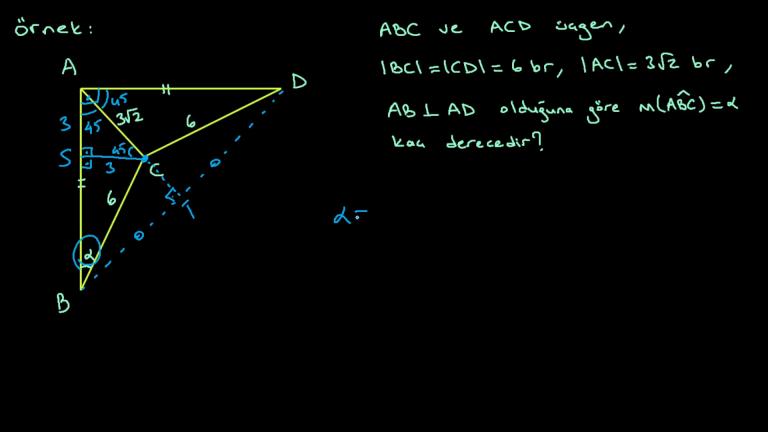 örnek:
ABC ve ACD üçgen,
|BC| = |CD| = 6 br, |AC| = 3√2 br,
AB ⊥ AD olduğuna göre m(ABC) = α
kaç derecedir?
A
D
45
3
45
3√2
6
S
45
3
C
6
α
B
α =